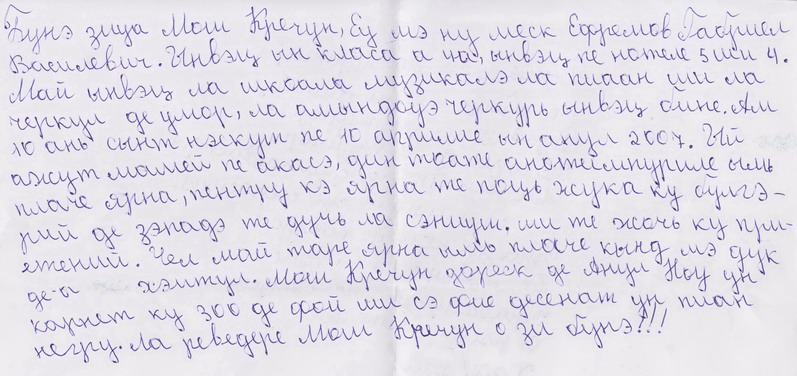 Бунэ зиуа Мош Кречун, Еу мэ ну меск Ефремов Габриел
Василевич. Ынвэц ын класа а иа, ынвэц пе нотеле 5 ши 4.
Май ынвэц ла шкоала музикалэ ла пиаан ши ла
черкул де умор, ла амындоуэ черкурь ынвэц бине. Ам
10 ань сынт нэскут пе 10 априлие ын анул 2007. Ый
ажут мамей пе акасэ, дин тоате анотеимпуриле ымь
плаче ярна, пентру кэ ярна те поць жука ку булгэ-
рий де зэпадэ те дучь ла сэниуш. ши те жочь ку при-
етений. Чел май таре ярна ымь плаче кынд мэ дук
де-а хэитул. Мош Кречун дореск де Анул Ноу ун
карнет ку 300 де фой ши сэ фие десенат ун пиан
негру. Ла реведере Мош Крэчун о зи бунэ!!!